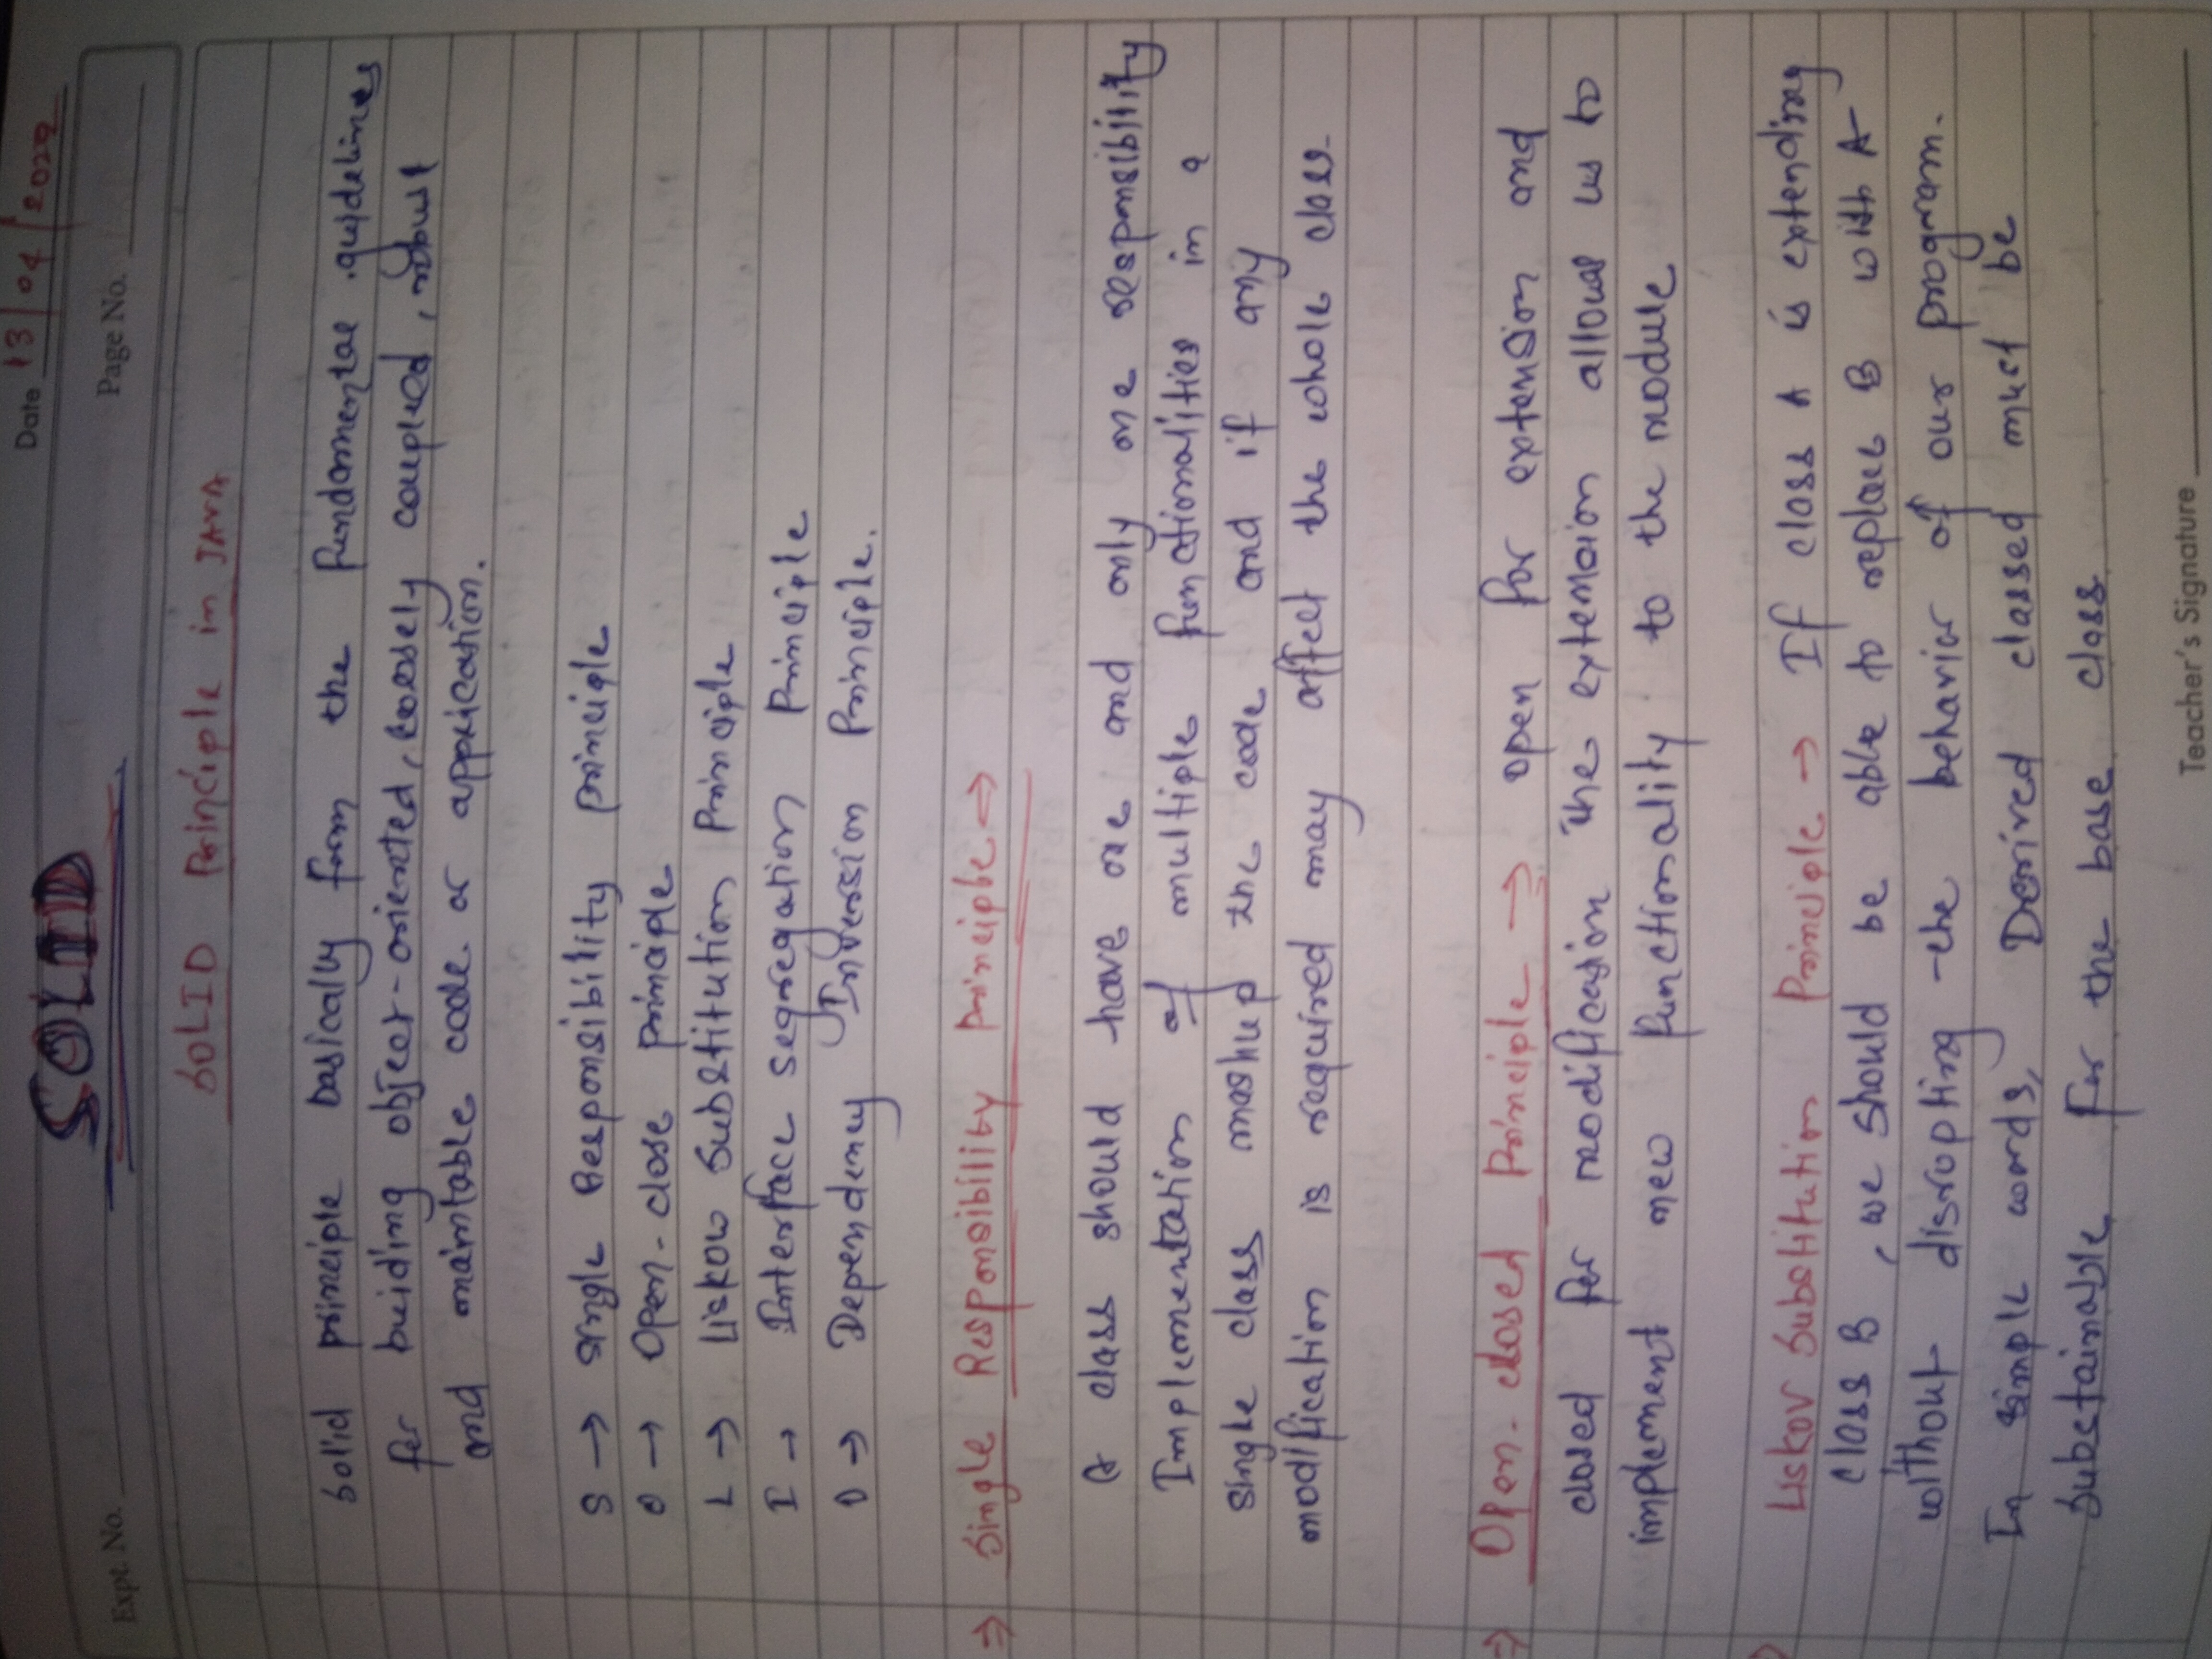 Date 13/04/2022
SOLID
Expt. No.
Page No.
SOLID Principle in JAVA
Solid principle basically form the fundamental guidelines
for buiding object-oriented, loosely coupled, robust
and maintable code or application.
S → Single Responsibility principle
O → Open-close principle
L → Liskow Substitution Principle
I → Interface segregation Principle
D → Dependency Inversion Principle.
⇒ Single Responsibility Principle ⇒
A class should have one and only one responsibility
Implementation of multiple functionalities in a
single class mashup the code and if any
modification is required may affect the whole class.
⇒ Open-closed Principle → open for extension and
closed for modification The extension allows us to
implement new functionality to the module
Liskov Substitution Principle → If class A is extending
class B, we should be able to replace B with A
without disrupting the behavior of our program.
In simple words, Derived classed must be
Substainable for the base class
Teacher's Signature